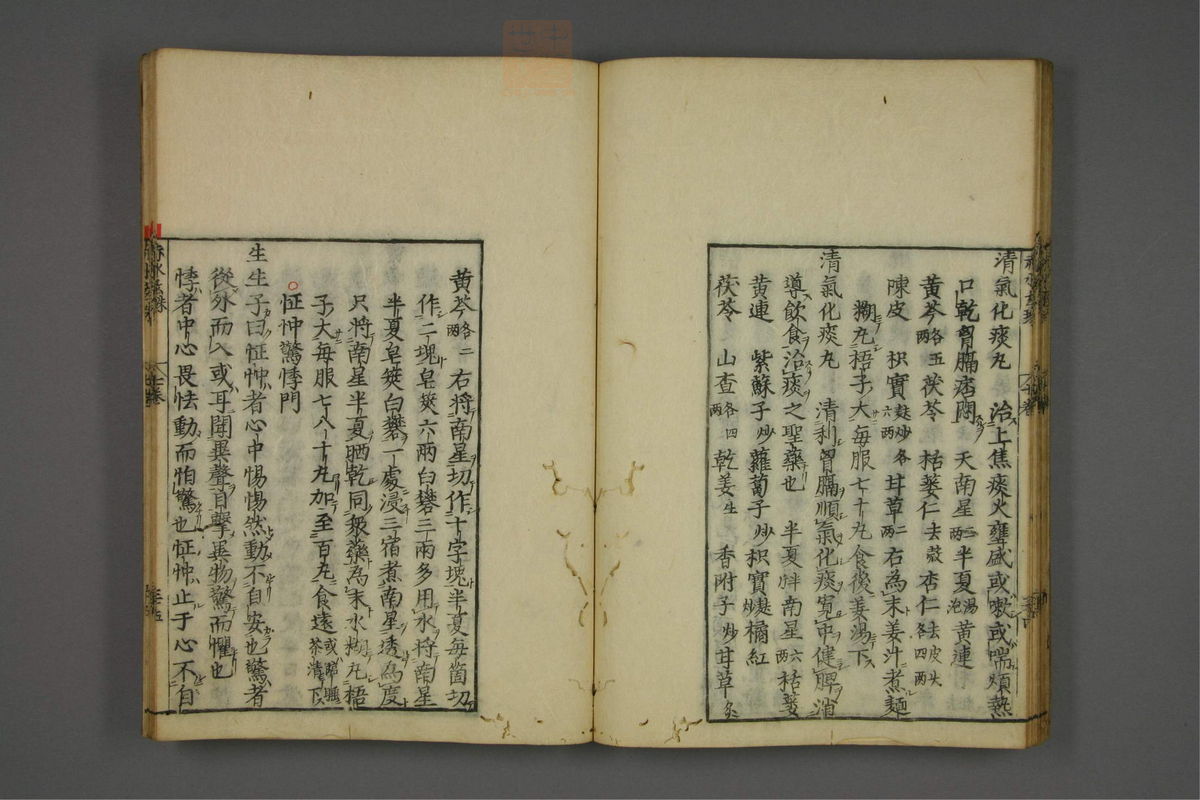 清氣化痰丸　治上焦痰火壅盛或嗽或喘煩熱
口乾胷膈痞悶　天南星三兩半夏湯泡黃連
黃芩各五兩茯苓　栝蔞仁去殼杏仁去皮尖各四兩
陳皮　枳實麩炒各六兩甘草二兩右為末姜汁煮麵
糊丸梧子大每服七十丸食後姜湯下
清氣化痰丸　清利胷膈順氣化痰寬中健脾消
導飲食治痰之聖藥也　半夏　南星六兩栝蔞
黃連　紫蘇子炒蘿蔔子炒枳實麩炒橘紅
茯苓　山查各四兩乾姜生　香附子炒甘草炙
黃芩各二兩　右將南星切作十字塊半夏每箇切
作二塊皂莢六兩白礬三兩多用水將南星
半夏皂莢白礬一處浸三宿煮南星透為度
只將南星半夏晒乾同衆藥為末水糊丸梧
子大每服七八十丸加至百丸食遠或臨臥茶清下
怔忡驚悸門
生生子曰怔忡者心中惕惕然動不自安也驚者
從外而入或耳聞異聲目擊異物驚而懼也
悸者中心畏怯動而怕驚也怔忡止于心不自